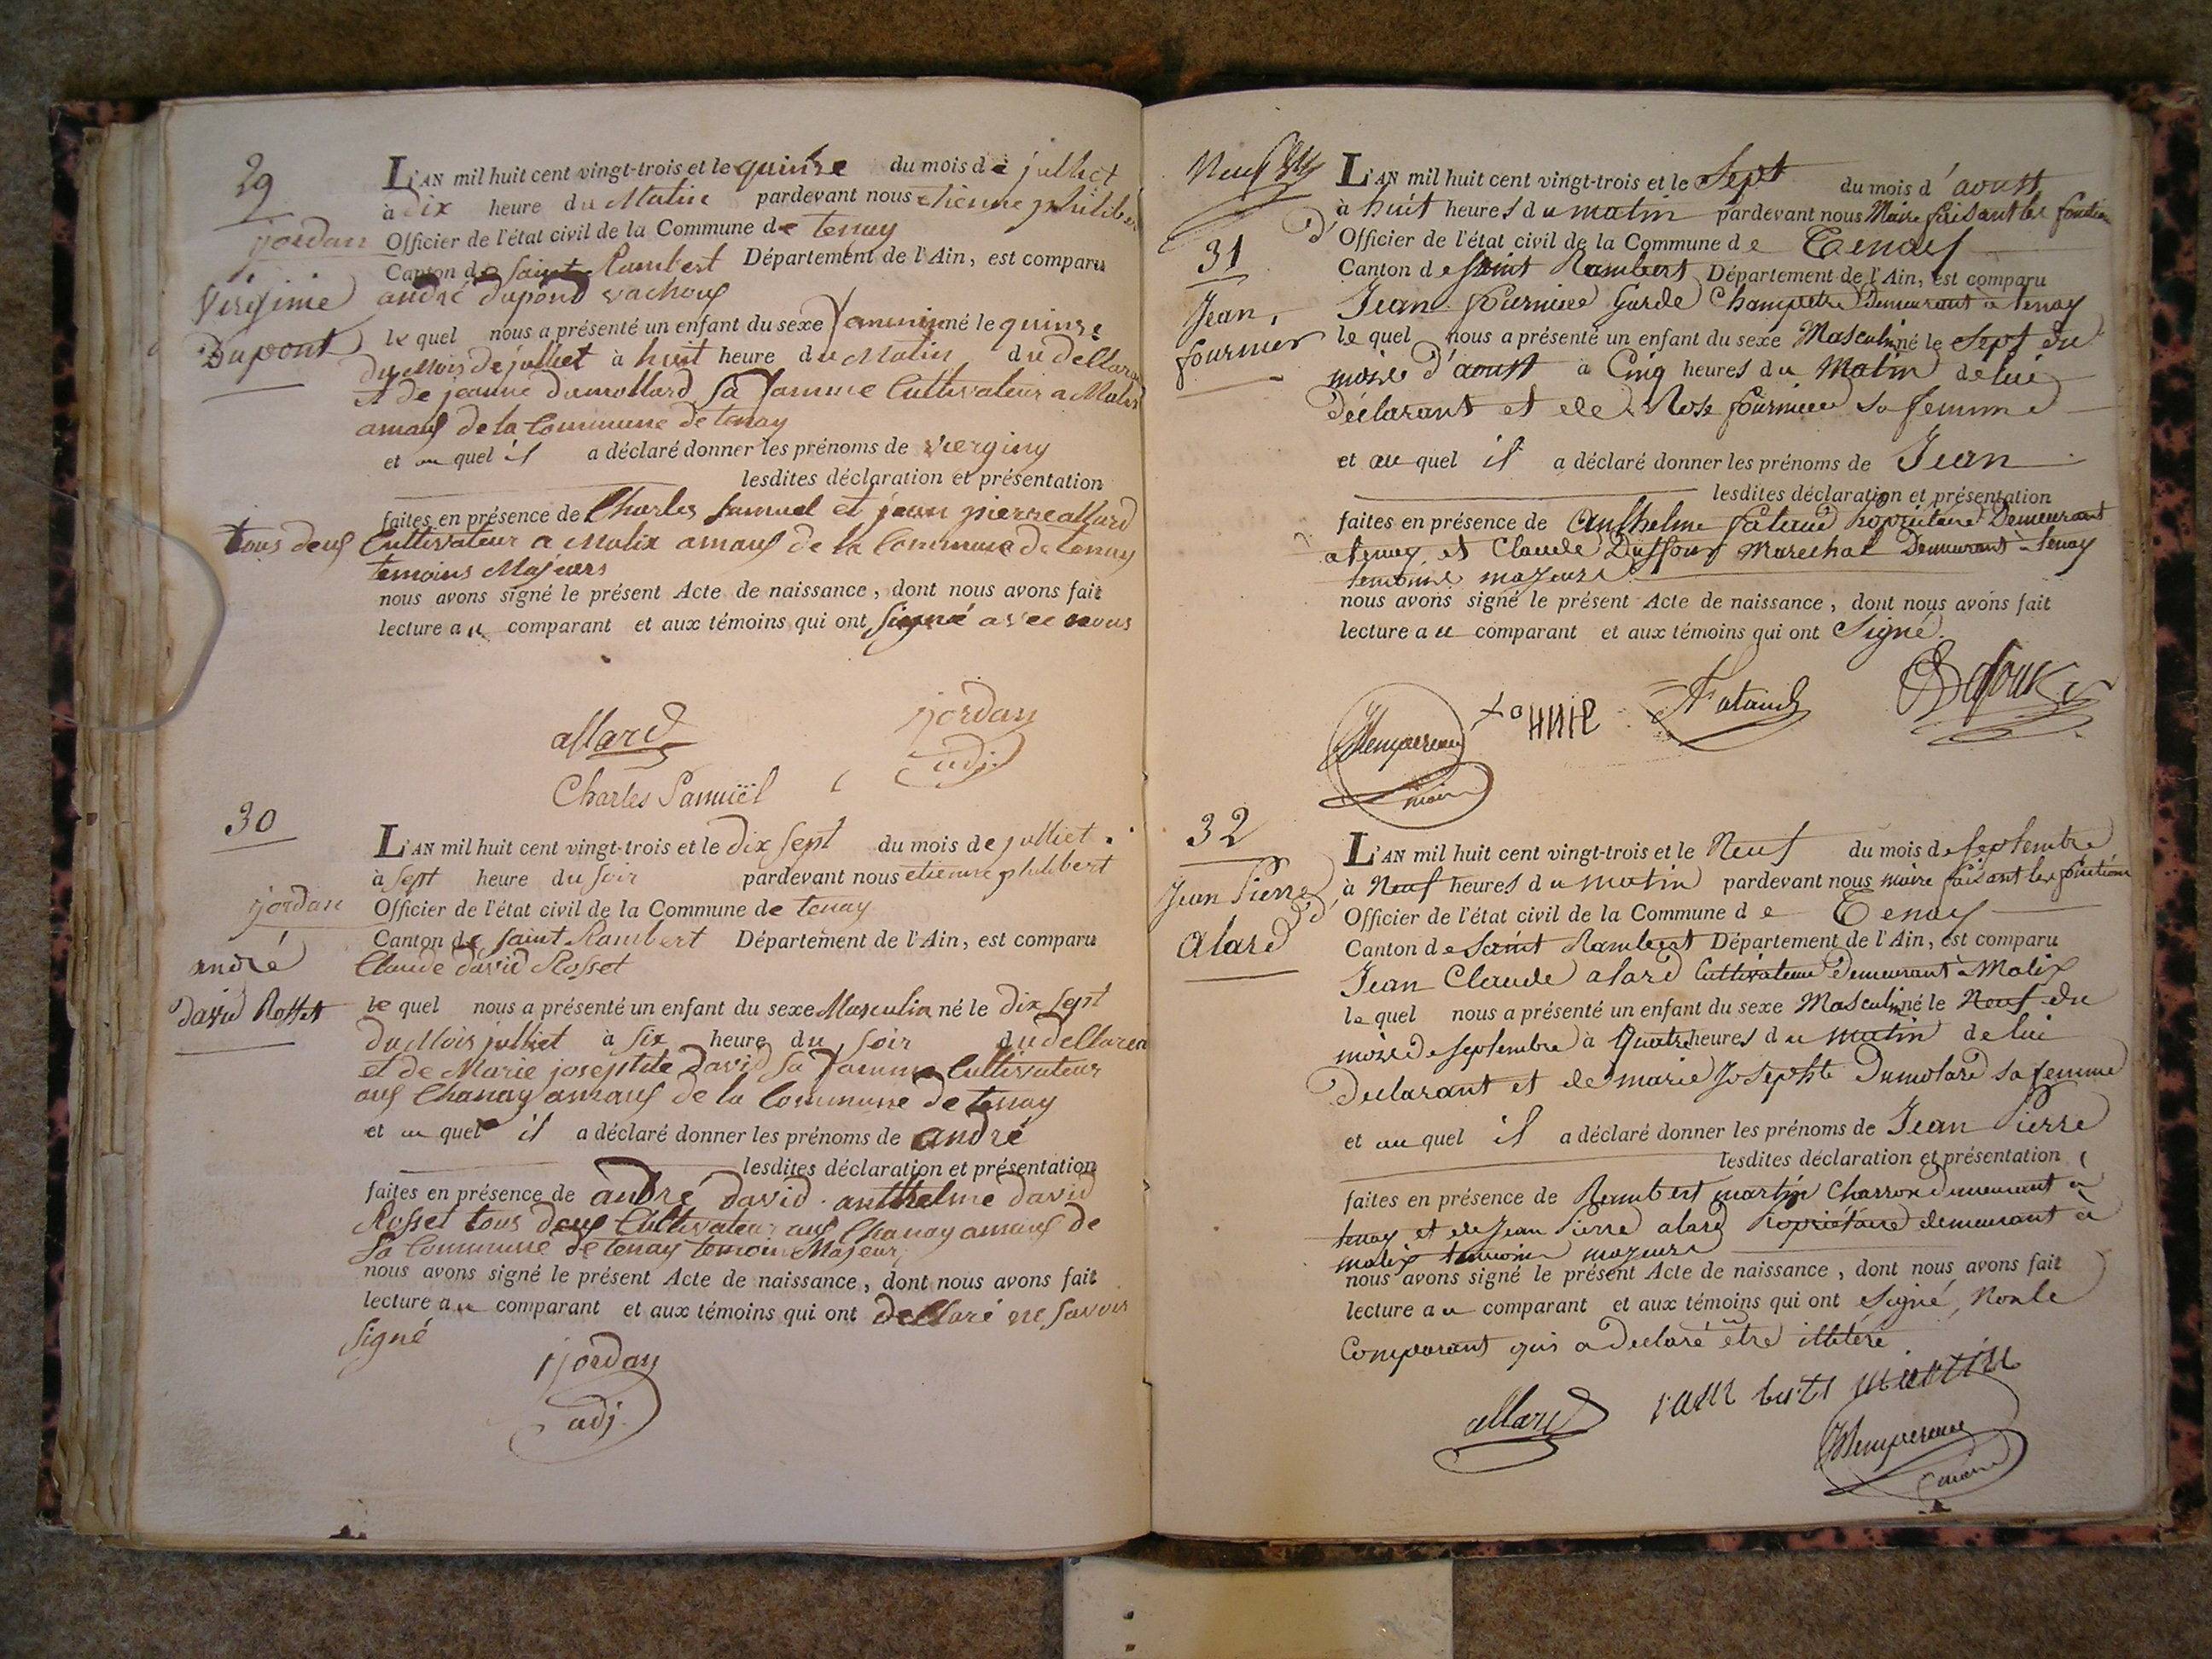 29
L'AN mil huit cent vingt-trois et le quinse du mois de julliet
à dix heure du Matin pardevant nous etienne philiber
jordan Officier de l'état civil de la Commune de tenay
Canton de saint Rambert Département de l'Ain, est comparu
Virginie andré dupond vachoux
Dupont le quel nous a présenté un enfant du sexe famininné le quinse
du Mois de julliet à huit heure du Matin du dellara
et de jeanne dumollard sa famme Cultivateur a Malix
amaux de la Commune de tenay
et au quel il a déclaré donner les prénoms de verginy
lesdites déclaration et présentation
faites en présence de Charles Samuel et jean pierre allard
tous deux Cultivateur a Malix amaux de la Commune de tenay
témoins Majeurs
nous avons signé le présent Acte de naissance, dont nous avons fait
lecture au comparant et aux témoins qui ont signé avec nous
allard
jjordan
adj.
Charles Samuël
30
L'AN mil huit cent vingt-trois et le dix sept du mois de julliet
à sept heure du soir pardevant nous etienne philibert
jordan Officier de l'état civil de la Commune de tenay
Canton de saint Rambert Département de l'Ain, est comparu
andré Claude david Rosset
david Rosset le quel nous a présenté un enfant du sexe Masculin né le dix sept
du Mois julliet à six heure du soir du dellaren
et de Marie josephte David sa famme Cultivateur
aux Chanay amaux de la Commune de tenay
et au quel il a déclaré donner les prénoms de andré
lesdites déclaration et présentation
faites en présence de andré david anthelme david
Rosset tous deux Cultivateur aux Chanay amaux de
la Commune de tenay temoin Majeur
nous avons signé le présent Acte de naissance, dont nous avons fait
lecture au comparant et aux témoins qui ont dellaré ne savoir
signé
jjordan
adj.
L'AN mil huit cent vingt-trois et le Sept du mois d'aoust
à huit heures du matin pardevant nous Maire faisant les fonction
d'Officier de l'état civil de la Commune de Tenay
31
Canton de Saint Rambert Département de l'Ain, est comparu
Jean fournier Garde Champetre Demeurant a tenay
Jean, fournier
le quel nous a présenté un enfant du sexe Masculinné le Sept du
mois d'aoust à Cinq heures du Matin de lui
déclarant et de Rose fournier sa femme
et au quel il a déclaré donner les prénoms de Jean
lesdites déclaration et présentation
faites en présence de Anthelme fataud Propriétaire Demeurant
a tenay et Claude Duffour Marechal Demeurant a tenay
temoins majeurs
nous avons signé le présent Acte de naissance, dont nous avons fait
lecture au comparant et aux témoins qui ont Signé.
maire
fataud
32
L'AN mil huit cent vingt-trois et le Neuf du mois de septembre
à Neuf heures du matin pardevant nous maire faisant les fonctions
Jean Pierre
d'Officier de l'état civil de la Commune de Tenay
Alard
Canton de Saint Rambert Département de l'Ain, est comparu
Jean Claude alard Cultivateur Demeurant a Malix
le quel nous a présenté un enfant du sexe Masculinné le Neuf du
mois de septembre à Quatre heures du matin de lui
Declarant et de marie Josephte Dumolard sa femme
et au quel il a déclaré donner les prénoms de Jean Pierre
lesdites déclaration et présentation
faites en présence de Rambert martin Charron demeurant à
tenay et de Jean Pierre alard Propriétaire demeurant à
malix temoins majeurs
nous avons signé le présent Acte de naissance, dont nous avons fait
lecture au comparant et aux témoins qui ont signé, Non le
Comparant qui a Declaré être illitéré
allard
ram berts martin
maire